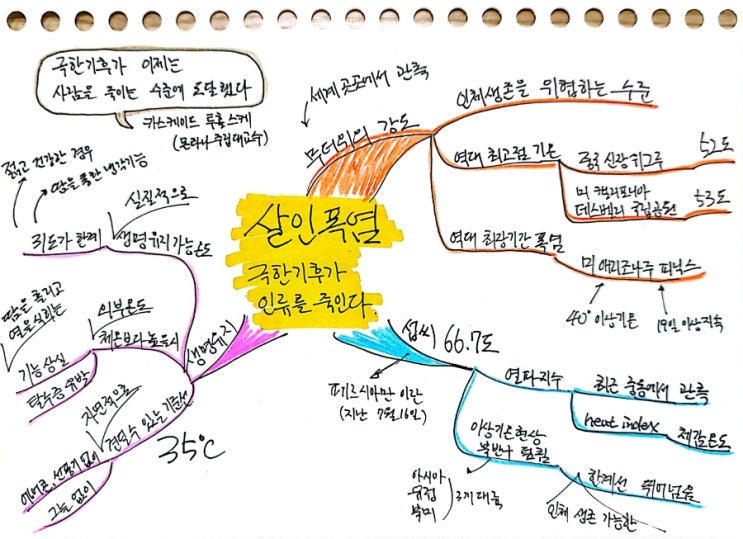 극한기후가 이제는
사람을 죽이는 수준에 도달했다
카스케이드 루홀스케
(몬타나 주립대교수)
살인폭염
극한기후가
인류를 죽인다.
무더위의 강도
세계 곳곳에서 관측
인체생존을 위협하는 수준
역대 최고점 기온
중국 신장 위구르
52도
미 캘리포니아
데스벨리 국립공원
53도
역대 최장기간 폭염
미 애리조나주 피닉스
40° 이상기온
19일 이상지속
섭씨 66.7도
페르시아만 이란
(지난 7월 16일)
열파지수
최근 중동에서 관측
heat index
체감온도
이상기온현상
북반구 탐킬
아시아
유럽
북미
3개 대륙
한계선 뛰어넘음
인체 생존 가능한
생명유지
생명유지가능온도
실질적으로
31도가 한계
젊고 건강한 경우
땀을 통한 냉각기능
체온보다 높을시
외부온도
땀을 흘리고
열을 식히는
기능상실
탈수증 유발
35℃
견딜수 있는 기준선
자연적으로
에어콘, 선풍기 없이
그늘 없이